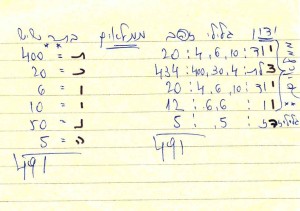 ידיו גלילי זהב ממלאים
יוד : 10 , 6 , 4 : 20 ת = 400
דלת : 4 , 30 , 400 : 434 כ = 20
יוד : 10 , 6 , 4 : 20 ו = 6
וו : 6 , 6 : 12 י = 10
5 , : 5 נ = 50
ה = 5
491 491